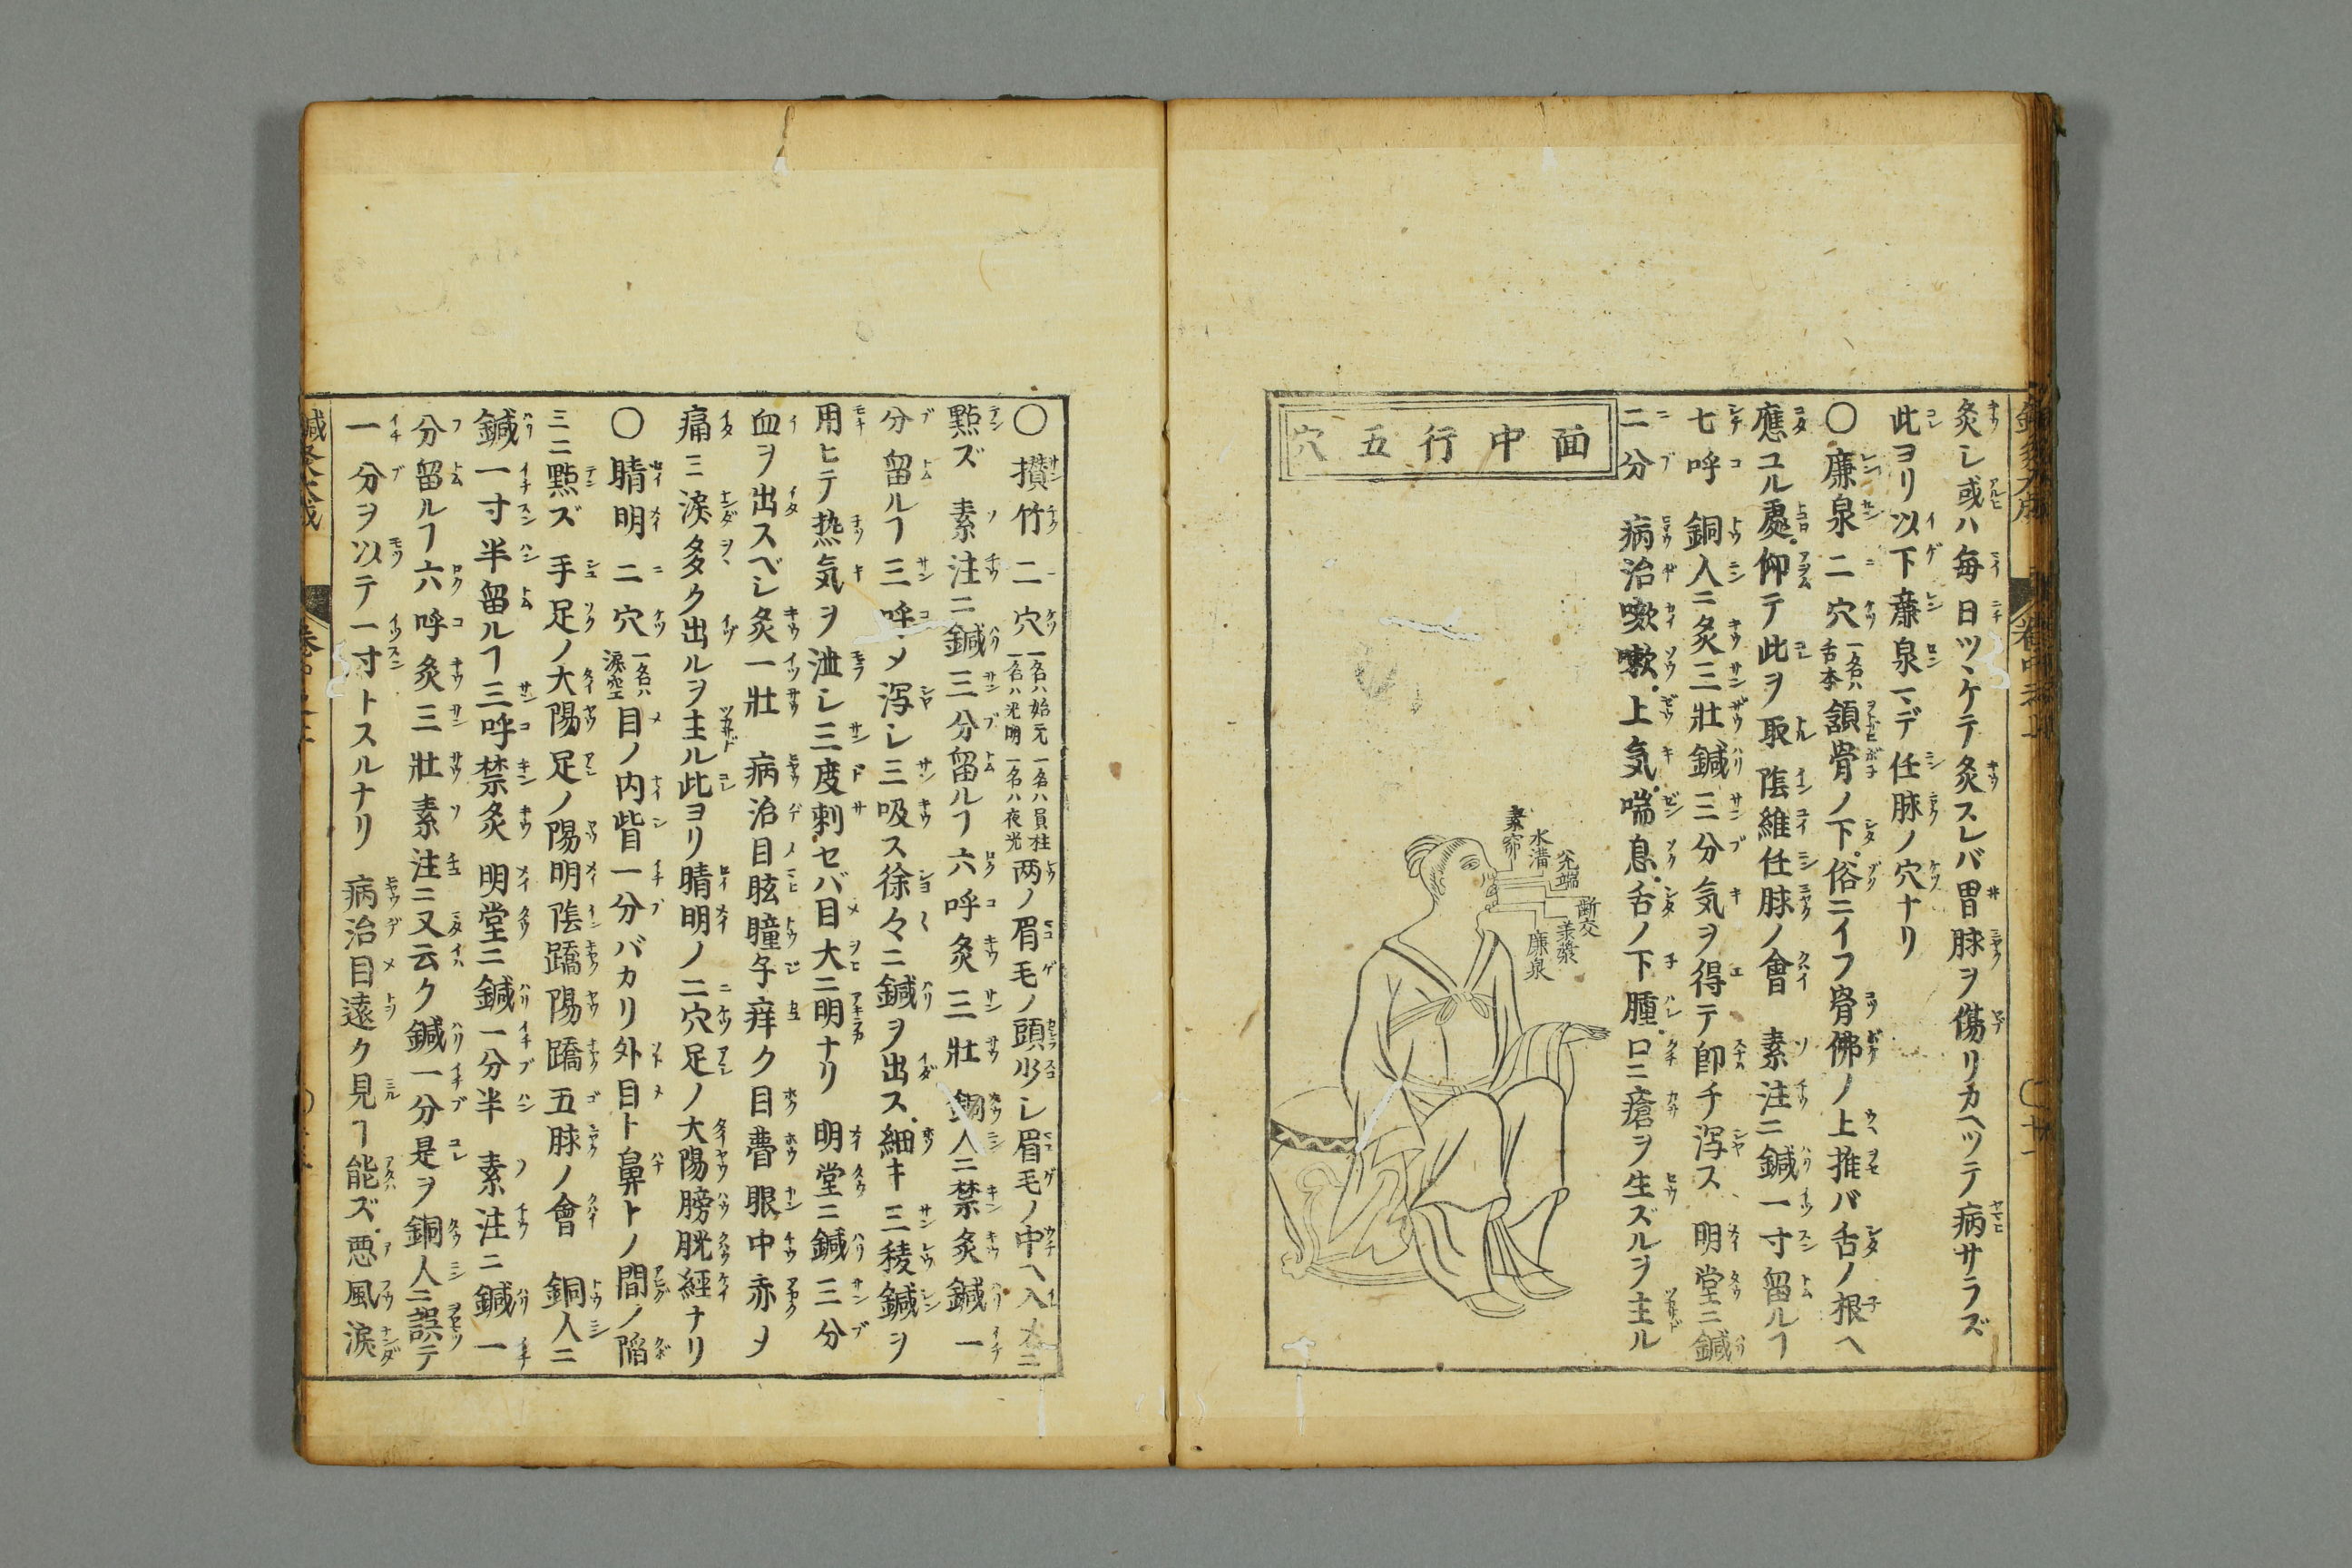 灸シ或ハ毎日ツヾケテ灸スレバ胃脉ヲ傷リカヘッテ病サラズ
此ヨリ以下廉泉マデ任脉ノ穴ナリ
〇廉泉二穴一名ハ舌本頷骨ノ下俗ニイフ骨佛ノ上推バ舌ノ根ヘ
應ユル處仰テ此ヲ取陰維任脉ノ會 素注ニ鍼一寸留ルヿ
七呼 銅人ニ灸三壯鍼三分気ヲ得テ即チ瀉ス 明堂ニ鍼
二分 病治咳嗽上気喘息舌ノ下腫口ニ瘡ヲ生ズルヲ主ル
面中行五穴
素窌
水溝
兊端
齗交
羕漿
廉泉
〇攅竹二穴一名ハ始元一名ハ員柱一名ハ光明一名ハ夜光两ノ眉毛ノ頭少シ眉毛ノ中ヘ入
點ズ 素注ニ鍼三分留ルヿ六呼灸三壯 銅人ニ禁灸鍼一
分留ルヿ三呼〆瀉シ三吸ス徐々ニ鍼ヲ出ス細キ三稜鍼ヲ
用ヒテ热気ヲ泄シ三度刺セバ目大ニ明ナリ 明堂ニ鍼三分
血ヲ出スベシ灸一壯 病治目眩瞳子痒ク目瞢眼中赤〆
痛ミ涙多ク出ルヲ主ル此ヨリ睛明ノ二穴足ノ大陽膀胱經ナリ
〇睛明二穴一名ハ涙空目ノ内眥一分バカリ外目ト鼻トノ間ノ陥
ミニ點ズ 手足ノ大陽足ノ陽明陰蹻陽蹻五脉ノ會 銅人ニ
鍼一寸半留ルヿ三呼禁灸 明堂ニ鍼一分半 素注ニ鍼一
分留ルヿ六呼灸三壯素注ニ又云ク鍼一分是ヲ銅人ニ誤テ
一分ヲ以テ一寸トスルナリ 病治目遠ク見ヿ能ズ悪風涙